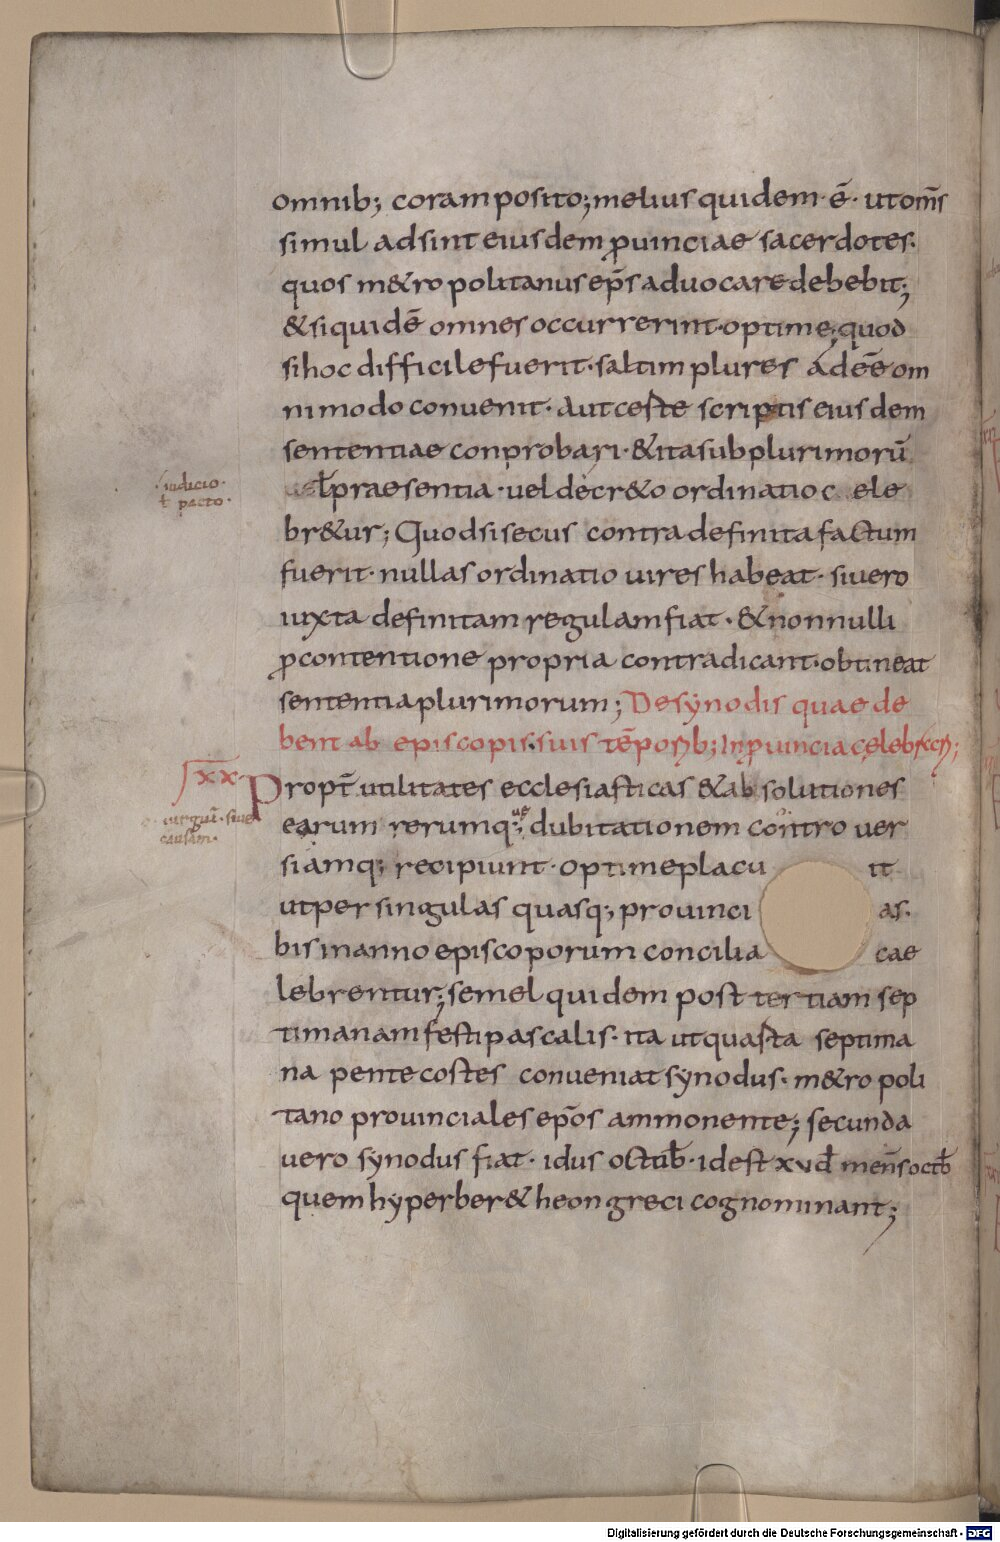 omnib; coram posito; melius quidem · ē · ut om̄s
simul adsint eiusdem ꝓuinciae sacerdotes.
quos m&ropolitanus ep̄s aduocare debebit;
& siquidē omnes occurrerint · optime; quod
si hoc difficile fuerit · saltim plures adeē om
nimodo conuenit · aut ceste scriptis eiusdem
sententiae conprobari · & ita sub plurimorū
ł praesentia · uel decr&o ordinatio c ele
·iudicio·
ł pacto·
br&ur; Quod si secus contra definita factum
fuerit · nullas ordinatio uires habeat · si uero
iuxta definitam regulam fiat · & nonnulli
ꝓ contentione propria contradicant · obtineat
sententia plurimorum; De synodis quae de
bent ab episcopis · suis tēporib; In ꝓuincia celebrari;
xx Propt̄ utilitates ecclesiasticas & absolutiones
earum rerumq; dubitationem contro uer
siue
causam·
siamq; recipiunt · optime placu it
ut per singulas quasq; prouinci as.
bis in anno episcoporum concilia cae
lebrentur; semel quidem post tertiam sep
timanam festi pascalis · ita ut quasta septima
na pentecostes conueniat synodus · m&ropoli
tano prouinciales ep̄os ammonente; secunda
uero synodus fiat · idus octub̄ · id est xvd̄ men̄s octb̄
quem hyperber&heon greci cognominant;
Digitalisierung gefördert durch die Deutsche Forschungsgemeinschaft - DFG